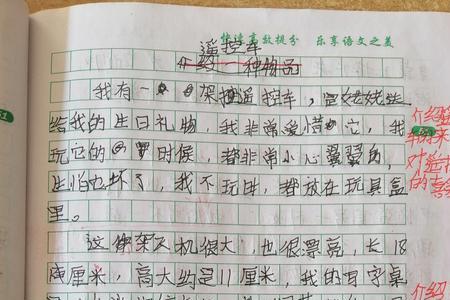 快读高效提分 乐享语文之美
遥控车
介绍一种物品
我有一架遥控车，是姥姥送
给我的生日礼物，我非常爱惜它，我
玩它的时候，都非常小心翼翼的，
生怕它坏了，我不玩时，都放在玩具盒
里。
这架飞机很大，也很漂亮，长18
厘米，高大约是11厘米，我的写字桌
介绍
的来
对
的喜
介绍